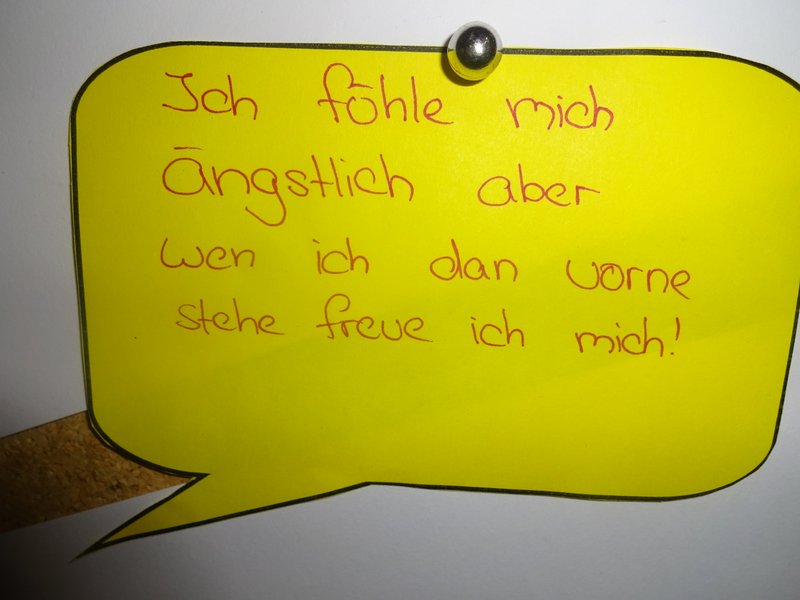 Ich föhle mich
Ängstlich aber
wen ich dan vorne
stehe freue ich mich!